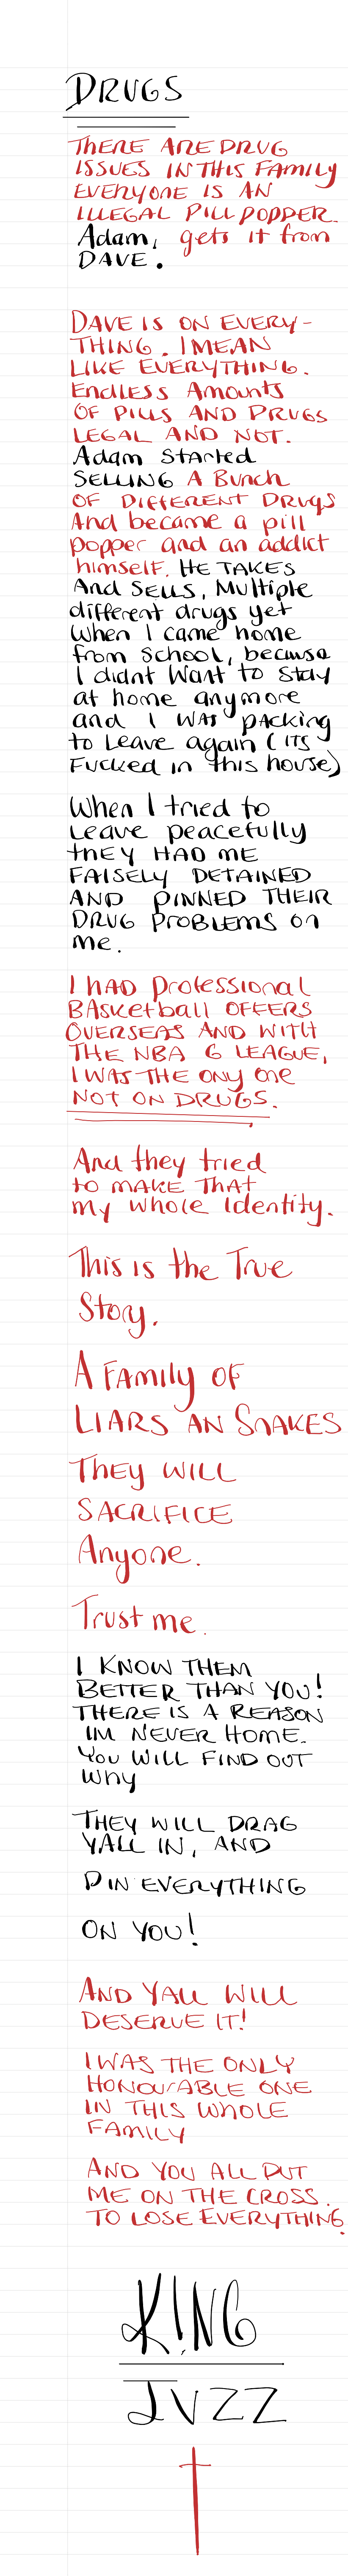 DRUGS
THERE ARE DRUG
ISSUES IN THIS FAMILY
EVERYONE IS AN
ILLEGAL PILL POPPER.
Adam, gets it from
DAVE.
DAVE IS ON EVERY-
THING. I MEAN
LIKE EVERYTHING.
Endless Amounts
OF PILLS AND DRUGS
LEGAL AND NOT.
Adam Started
SELLING A Bunch
OF DIFFERENT DRUgS
And became a pill
popper and an addict
himself. HE TAKES
And SELLS, Multiple
different drugs yet
When I came home
from School, because
I didnt Want to Stay
at home anymore
and I WAS pACKing
to Leave again (ITS
Fucked in this house)
When I tried to
Leave peacefully
tHEY HAD ME
FALSELY DETAINED
AND PINNED THEIR
DRUG PROBLEMS On
me.
I HAD Professional
BASketball OFFERS
OVERSEAS AND WITH
THE NBA G LEAGUE,
I WAS THE ONly One
NOT ON DRUGS.
And they tried
to MAKE THAT
my Whole Identity.
This is the True
Story.
A FAmily OF
LIARS AN SNAKES
THEy WILL
SACRIFICE
Anyone.
Trust me.
I KNOW THEM
BETTER THAN YOU!
THERE IS A REASON
IM NEVER HOME.
YOU WILL FIND OUT
Why
THEY WILL DRAG
YALL IN, AND
PIN EVERYTHING
ON YOU!
AND YALL WILL
DESERVE IT!
I WAS THE ONLY
HONOURABLE ONE
IN THIS WHOLE
FAMILY
AND YOU ALL PUT
ME ON THE CROSS.
TO LOSE EVERYTHING.
K!NG
JVZZ